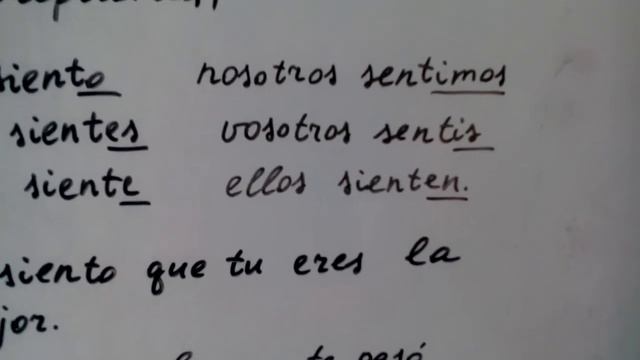 siento nosotros sentimos
sientes vosotros sentis
siente ellos sienten.
siento que tu eres la
jor.
te pesó